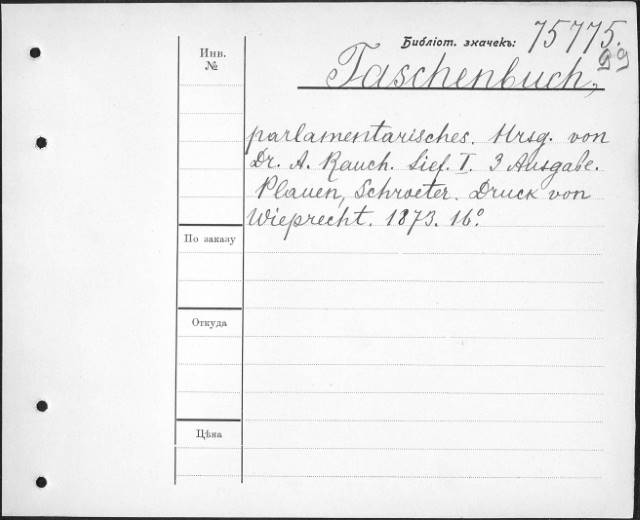 Библіот. значекъ: 75775.
99
Инв.
№
Taschenbuch,
parlamentarisches. Hrsg. von
Dr. A. Rauch. Lief. I. 3 Ausgabe.
Plauen, Schroeter. Druck von
Wieprecht. 1873. 16°.
По заказу
Откуда
Цѣна